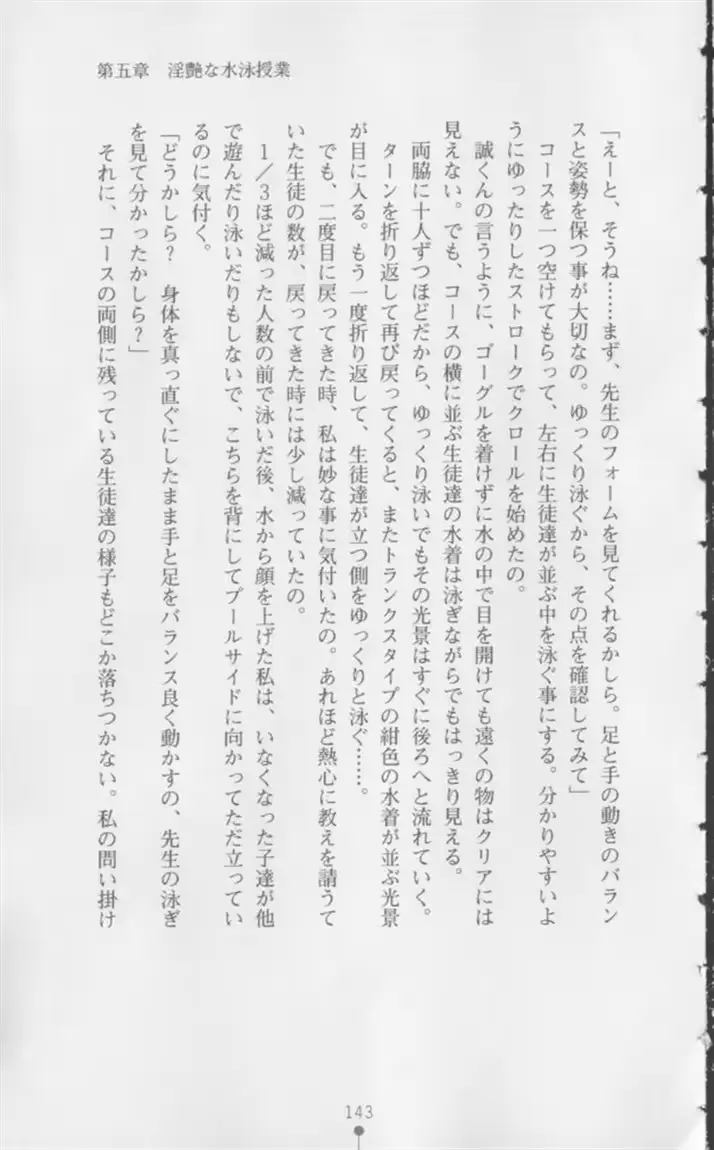 第五章　淫艶な水泳授業
「えーと、そうね……まず、先生のフォームを見てくれるかしら。足と手の動きのバラン
スと姿勢を保つ事が大切なの。ゆっくり泳ぐから、その点を確認してみて」
コースを一つ空けてもらって、左右に生徒達が並ぶ中を泳ぐ事にする。分かりやすいよ
うにゆったりしたストロークでクロールを始めたの。
誠くんの言うように、ゴーグルを着けずに水の中で目を開けても遠くの物はクリアには
見えない。でも、コースの横に並ぶ生徒達の水着は泳ぎながらでもはっきり見える。
両脇に十人ずつほどだから、ゆっくり泳いでもその光景はすぐに後ろへと流れていく。
ターンを折り返して再び戻ってくると、またトランクスタイプの紺色の水着が並ぶ光景
が目に入る。もう一度折り返して、生徒達が立つ側をゆっくりと泳ぐ……。
でも、二度目に戻ってきた時、私は妙な事に気付いたの。あれほど熱心に教えを請うて
いた生徒の数が、戻ってきた時には少し減っていたの。
1／3ほど減った人数の前で泳いだ後、水から顔を上げた私は、いなくなった子達が他
で遊んだり泳いだりもしないで、こちらを背にしてプールサイドに向かってただ立ってい
るのに気付く。
「どうかしら？　身体を真っ直ぐにしたまま手と足をバランス良く動かすの、先生の泳ぎ
を見て分かったかしら？」
それに、コースの両側に残っている生徒達の様子もどこか落ちつかない。私の問い掛け
143